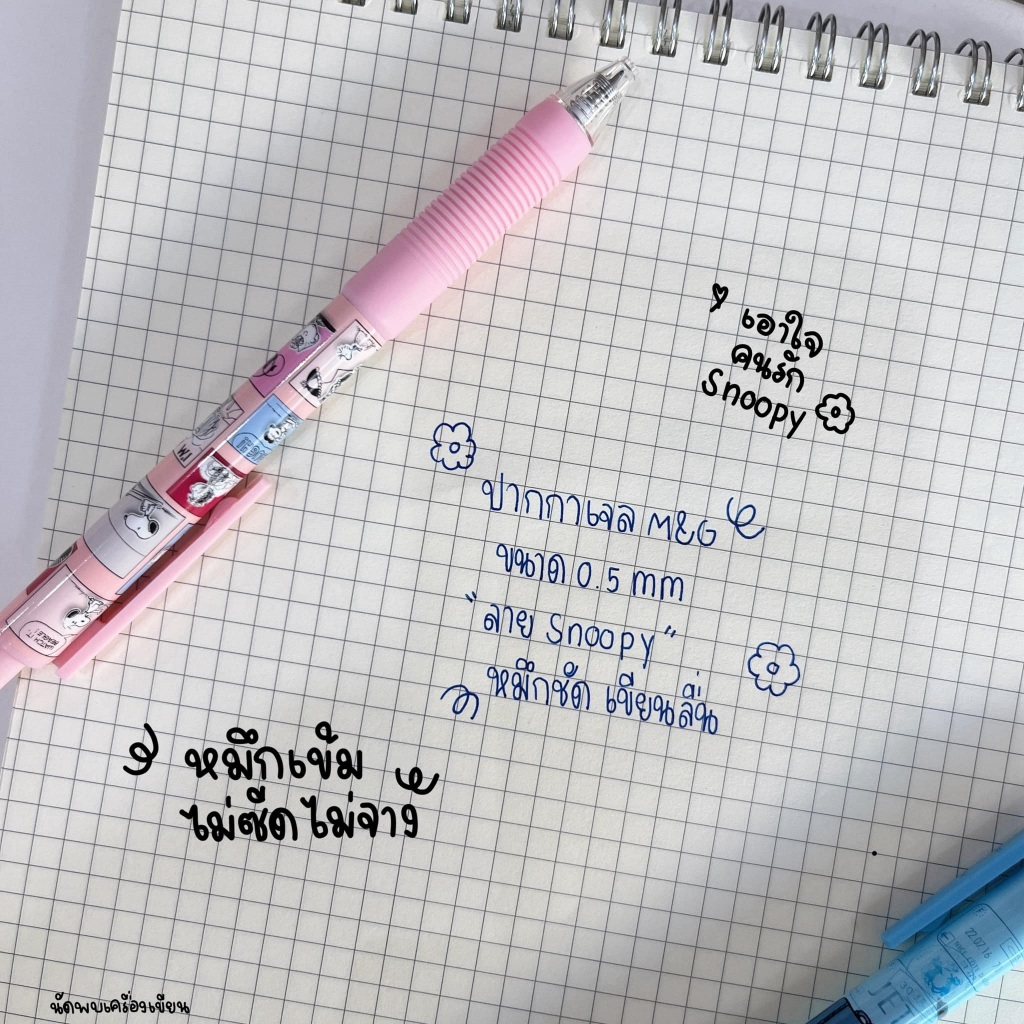 เอาใจ
คนรัก
Snoopy
ปากกาเจล M&G
ขนาด 0.5 mm
"ลาย Snoopy"
หมึกชัด เขียนลื่น
หมึกเข้ม
ไม่ซีดไม่จาง
WATCH IT,
22.02.16
JET
นัดพบเครื่องเขียน